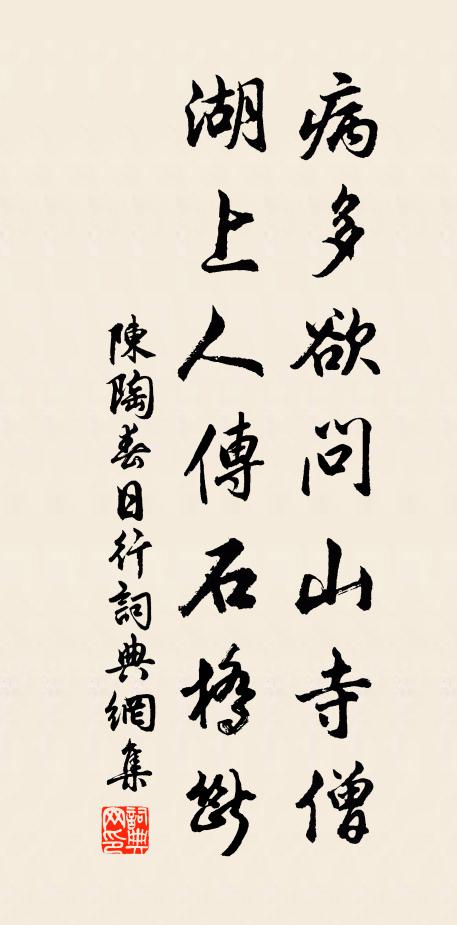 病多欲問山寺僧
湖上人傳石橋斷
陳陶春日行詞典網集
詞典網印